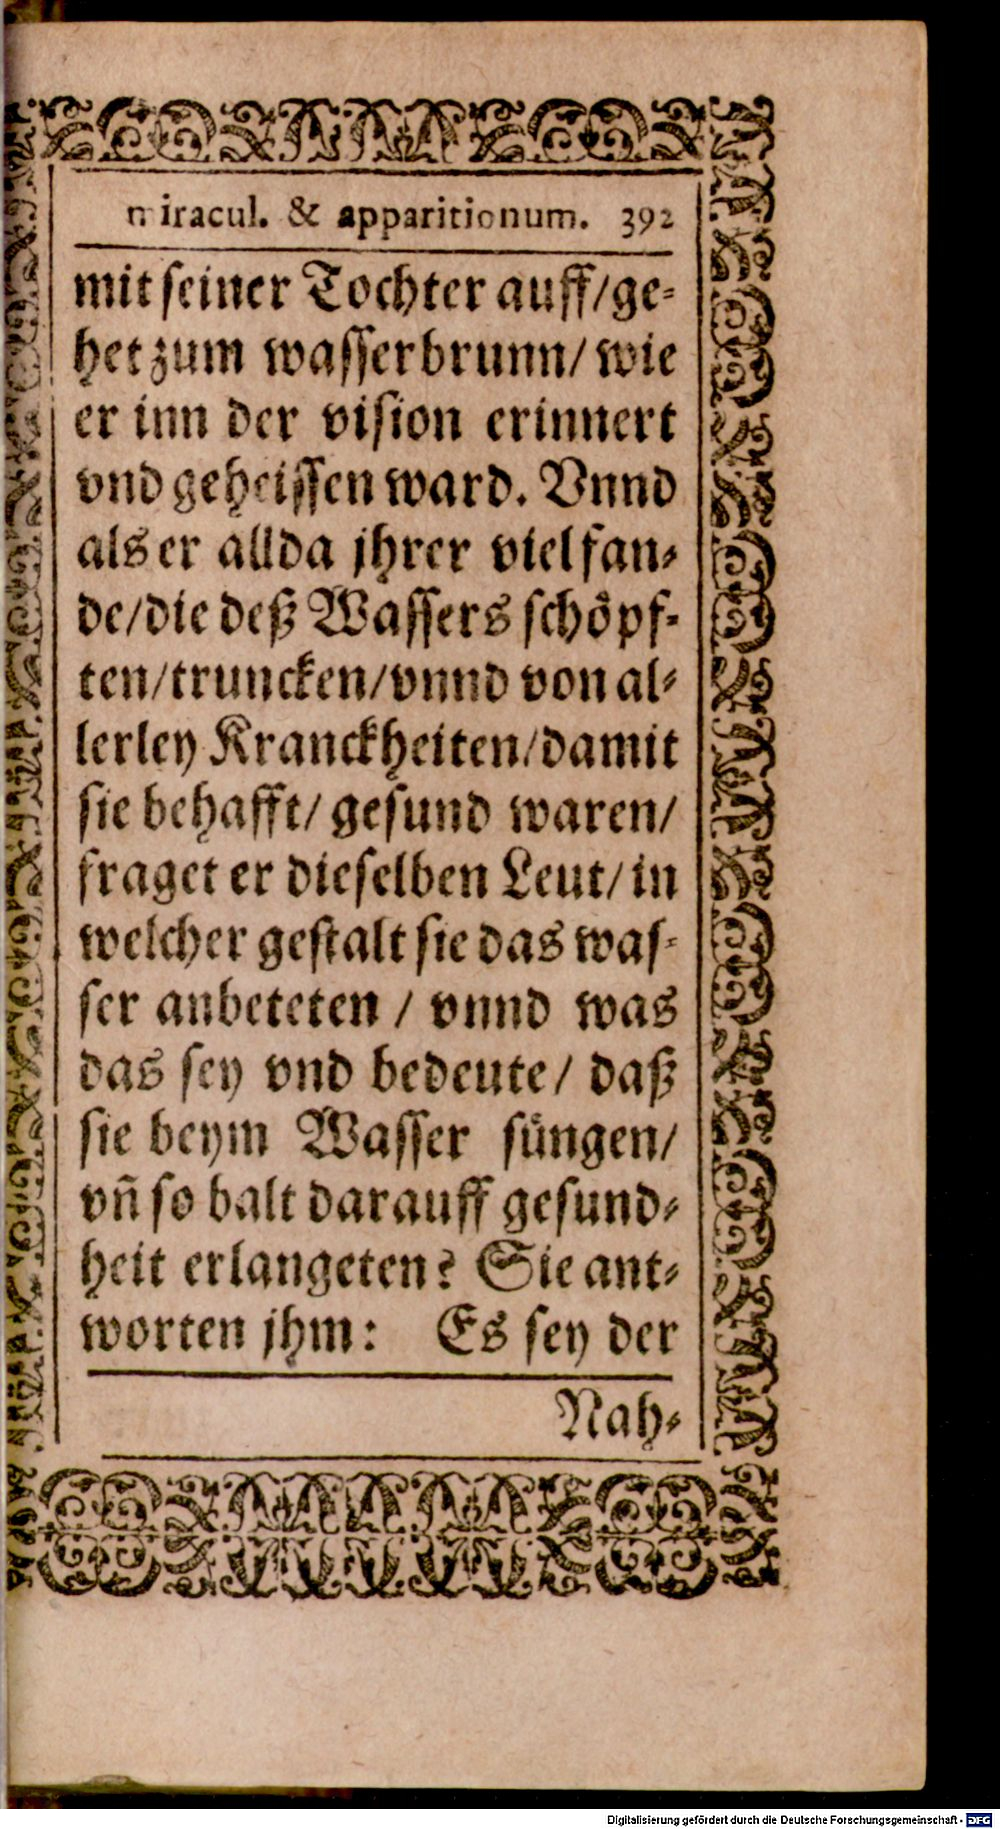 miracul. & apparitionum. 392
mit seiner Tochter auff/ge-
het zum wasserbrunn/ wie
er inn der vision erinnert
vnd geheissen ward. Vnnd
als er allda jhrer viel fan-
de/die deß Wassers schöpf-
ten/truncken/vnnd von al-
lerley Kranckheiten/damit
sie behafft/ gesund waren/
fraget er dieselben Leut/ in
welcher gestalt sie das was-
ser anbeteten / vnnd was
das sey vnd bedeute/ daß
sie beym Wasser süngen/
vñ so balt darauff gesund-
heit erlangeten? Sie ant-
worten jhm: Es sey der
Nah-
Digitalisierung gefördert durch die Deutsche Forschungsgemeinschaft - DFG